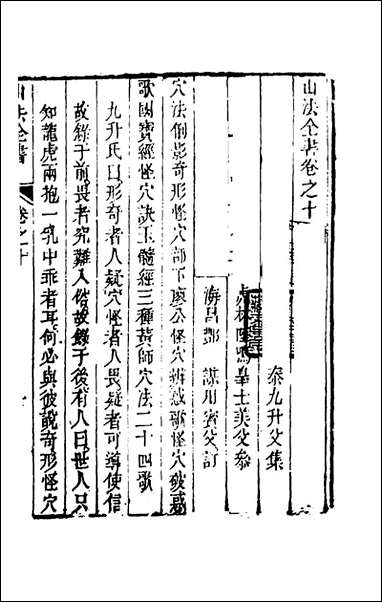 山法全書卷之十
泰九升父集
士美父叅
海昌 謀用賓父訂
穴法倒影奇形怪穴部下廖公怪穴辨惑歌怪穴破惑
歌國寶經怪穴訣玉髓經三種黃師穴法二十四歌
九升氏曰形奇者人疑穴怪者人畏疑者可導使信
故錄于前畏者究難入俗故錄于後有人曰世人只
知龍虎兩抱一乳中乖者耳何必與彼說奇形怪穴
山法全書
卷之十